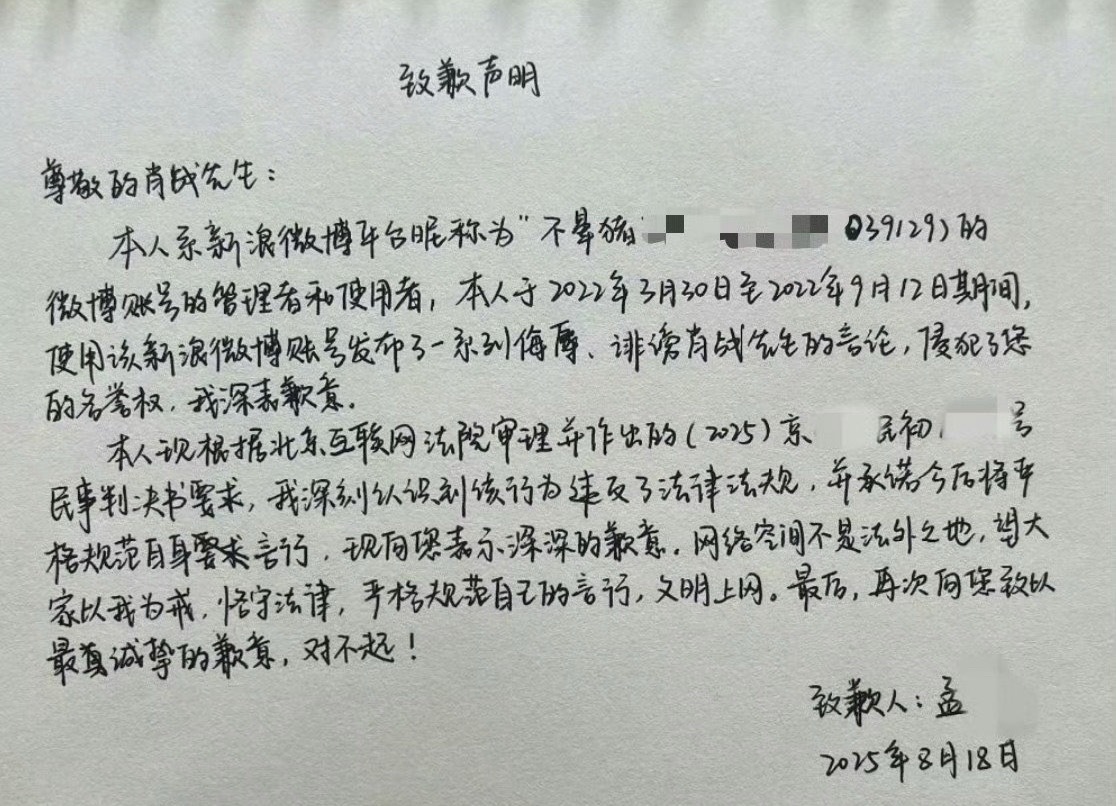 致歉声明
尊敬的肖战先生：
本人系新浪微博平台昵称为"不晕猪 039129)的
微博账号的管理者和使用者，本人于2022年3月30日至2022年9月12日期间，
使用该新浪微博账号发布了一系列侮辱、诽谤肖战先生的言论，侵犯了您
的名誉权，我深表歉意。
本人现根据北京互联网法院审理并作出的(2025)京 民初 号
民事判决书要求，我深刻认识到该行为违反了法律法规，并承诺今后将严
格规范自身要求言行，现向您表示深深的歉意。网络空间不是法外之地，望大
家以我为戒，恪守法律，严格规范自己的言行，文明上网。最后，再次向您致以
最真诚挚的歉意，对不起！
致歉人：孟
2025年8月18日